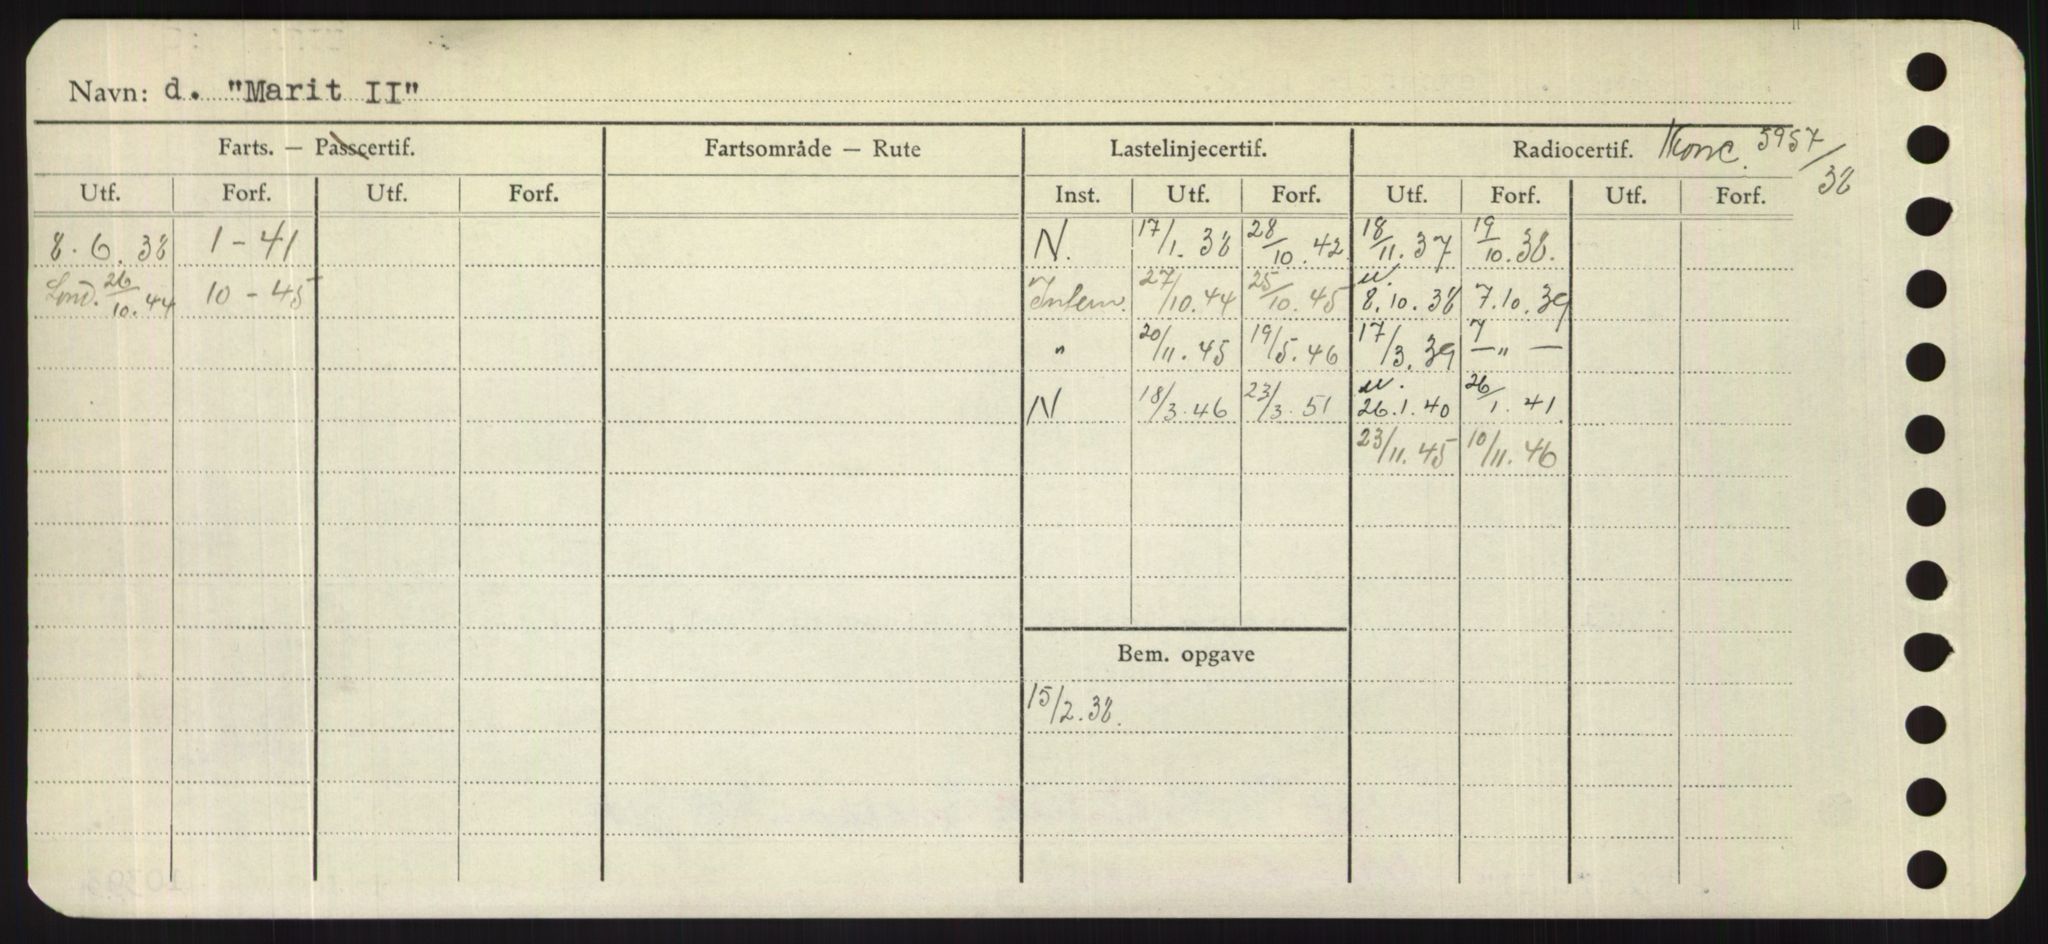 Navn: d. "Marit II"
Farts. — Passcertif. Fartsområde — Rute Lastelinjecertif. Radiocertif. Konc. 5957/38
Utf. Forf. Utf. Forf. Inst. Utf. Forf. Utf. Forf. Utf. Forf.
8.6.38 1-41 N. 17/1.38 28/10.42 18/11.37 19/10.38.
Lond. 26/10.44 10-45 Intern. 27/10.44 25/10.45 u. 8.10.38 7.10.39
" 20/11.45 19/5.46 17/3.39 7 — " —
N 18/3.46 23/3.51 u. 26.1.40 26/1.41
23/11.45 10/11.46
Bem. opgave
15/2.38.